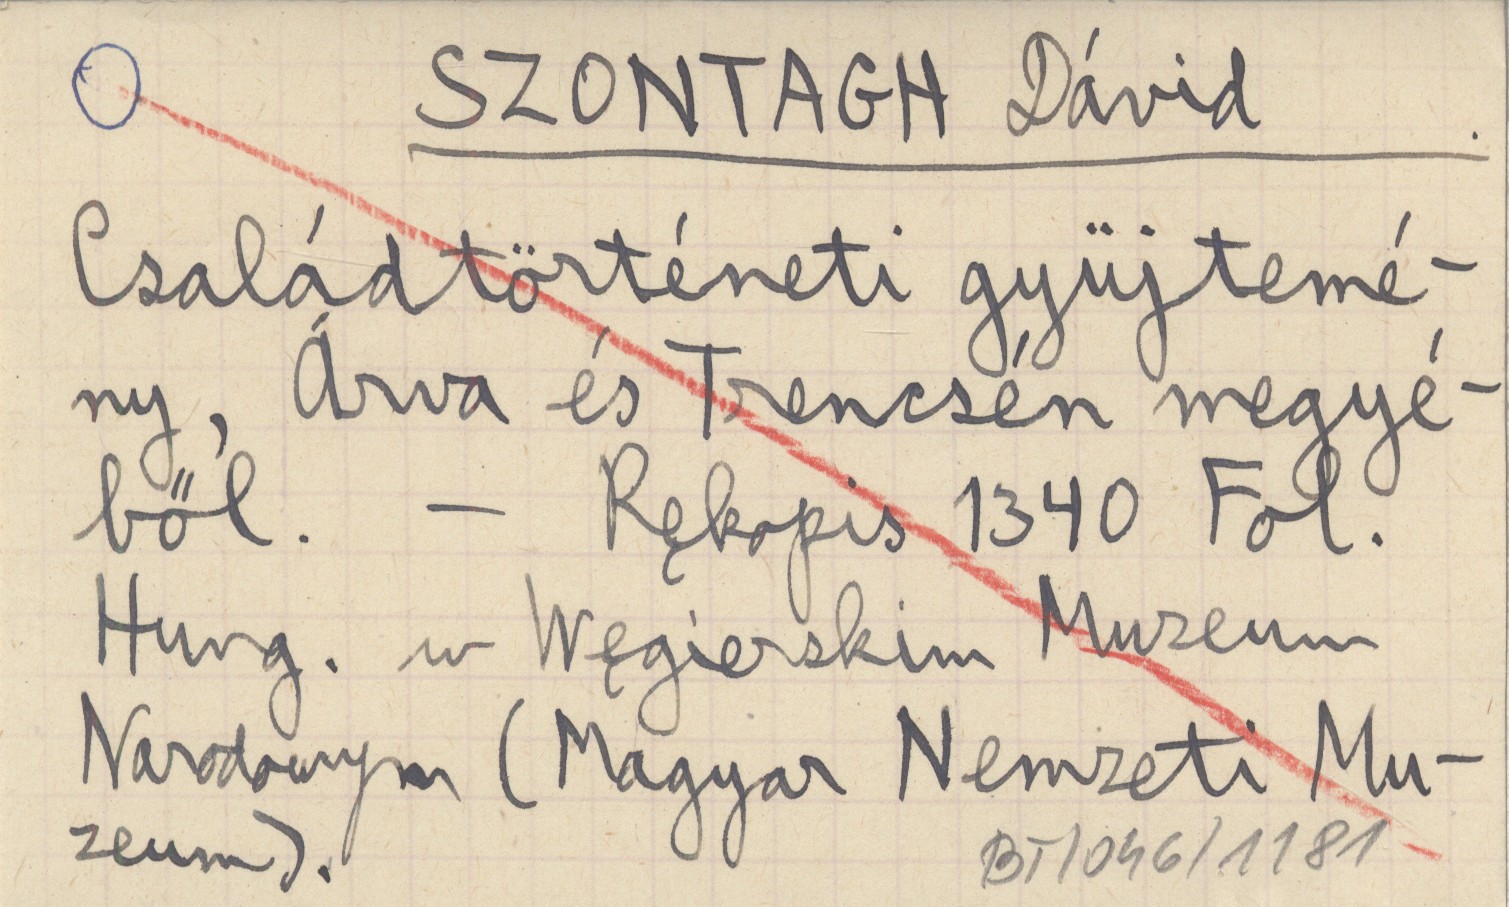 SZONTAGH Dávid
Családtörténeti gyüjtemé-
ny, Árva és Trencsén megyé-
ből. — Rękopis 1340 Fol.
Hung. w Węgierskim Muzeum
Narodowym (Magyar Nemzeti Mu-
zeum).
BT/046/1181